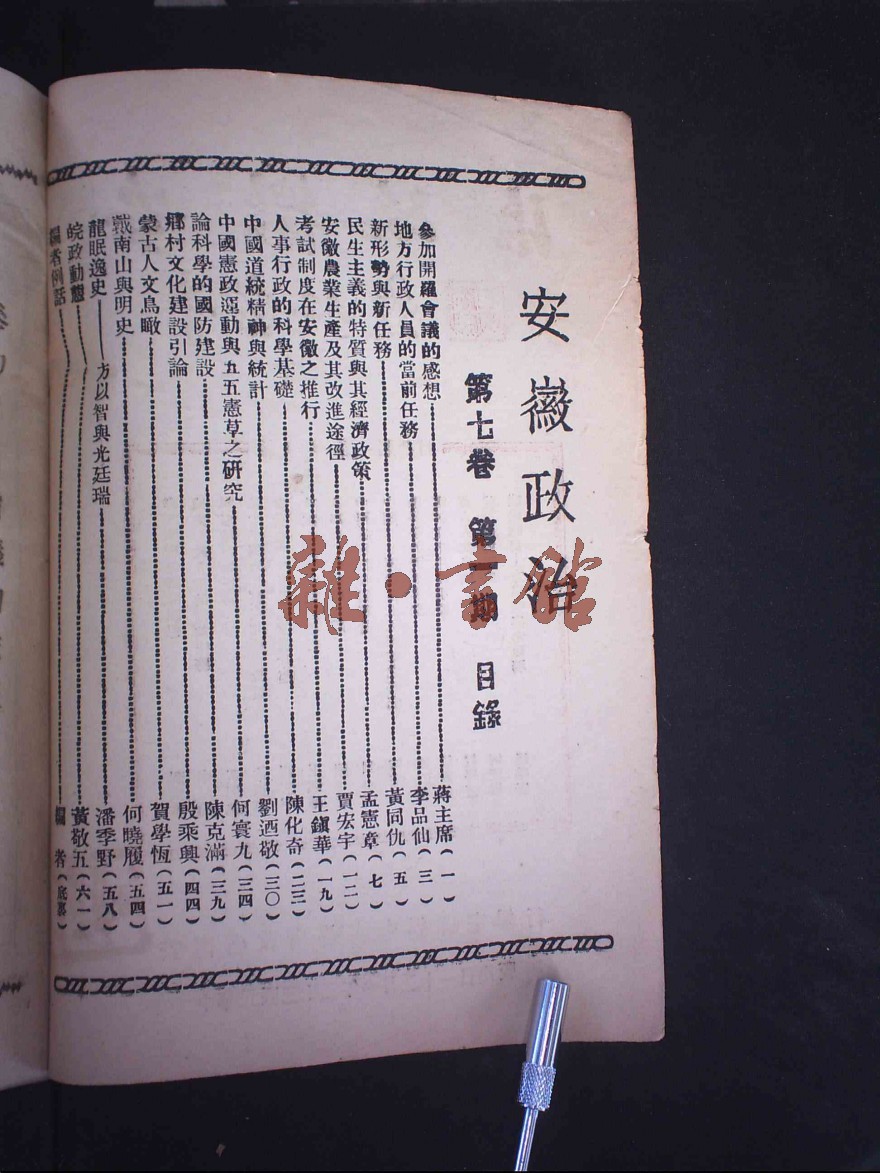 安徽政治
第七卷 第一期 目錄
參加開羅會議的感想 蔣主席(一)
地方行政人員的當前任務 李品仙(三)
新形勢與新任務 黃同仇(五)
民生主義的特質與其經濟政策 孟憲章(七)
安徽農業生產及其改進途徑 賈宏宇(一二)
考試制度在安徽之推行 王鎭華(一九)
人事行政的科學基礎 陳化奇(二三)
中國道統精神與統計 劉迺敬(三〇)
中國憲政運動與五五憲草之研究 何寰九(三四)
論科學的國防建設 陳克滿(三九)
鄉村文化建設引論 殷乘興(四四)
蒙古人文鳥瞰 賀學恆(五一)
戴南山與明史 何曉履(五四)
龍眠逸史——方以智與光廷瑞 潘季野(五八)
皖政動態 黃敬五(六一)
編者例話 編者(底裏)
雜·書館